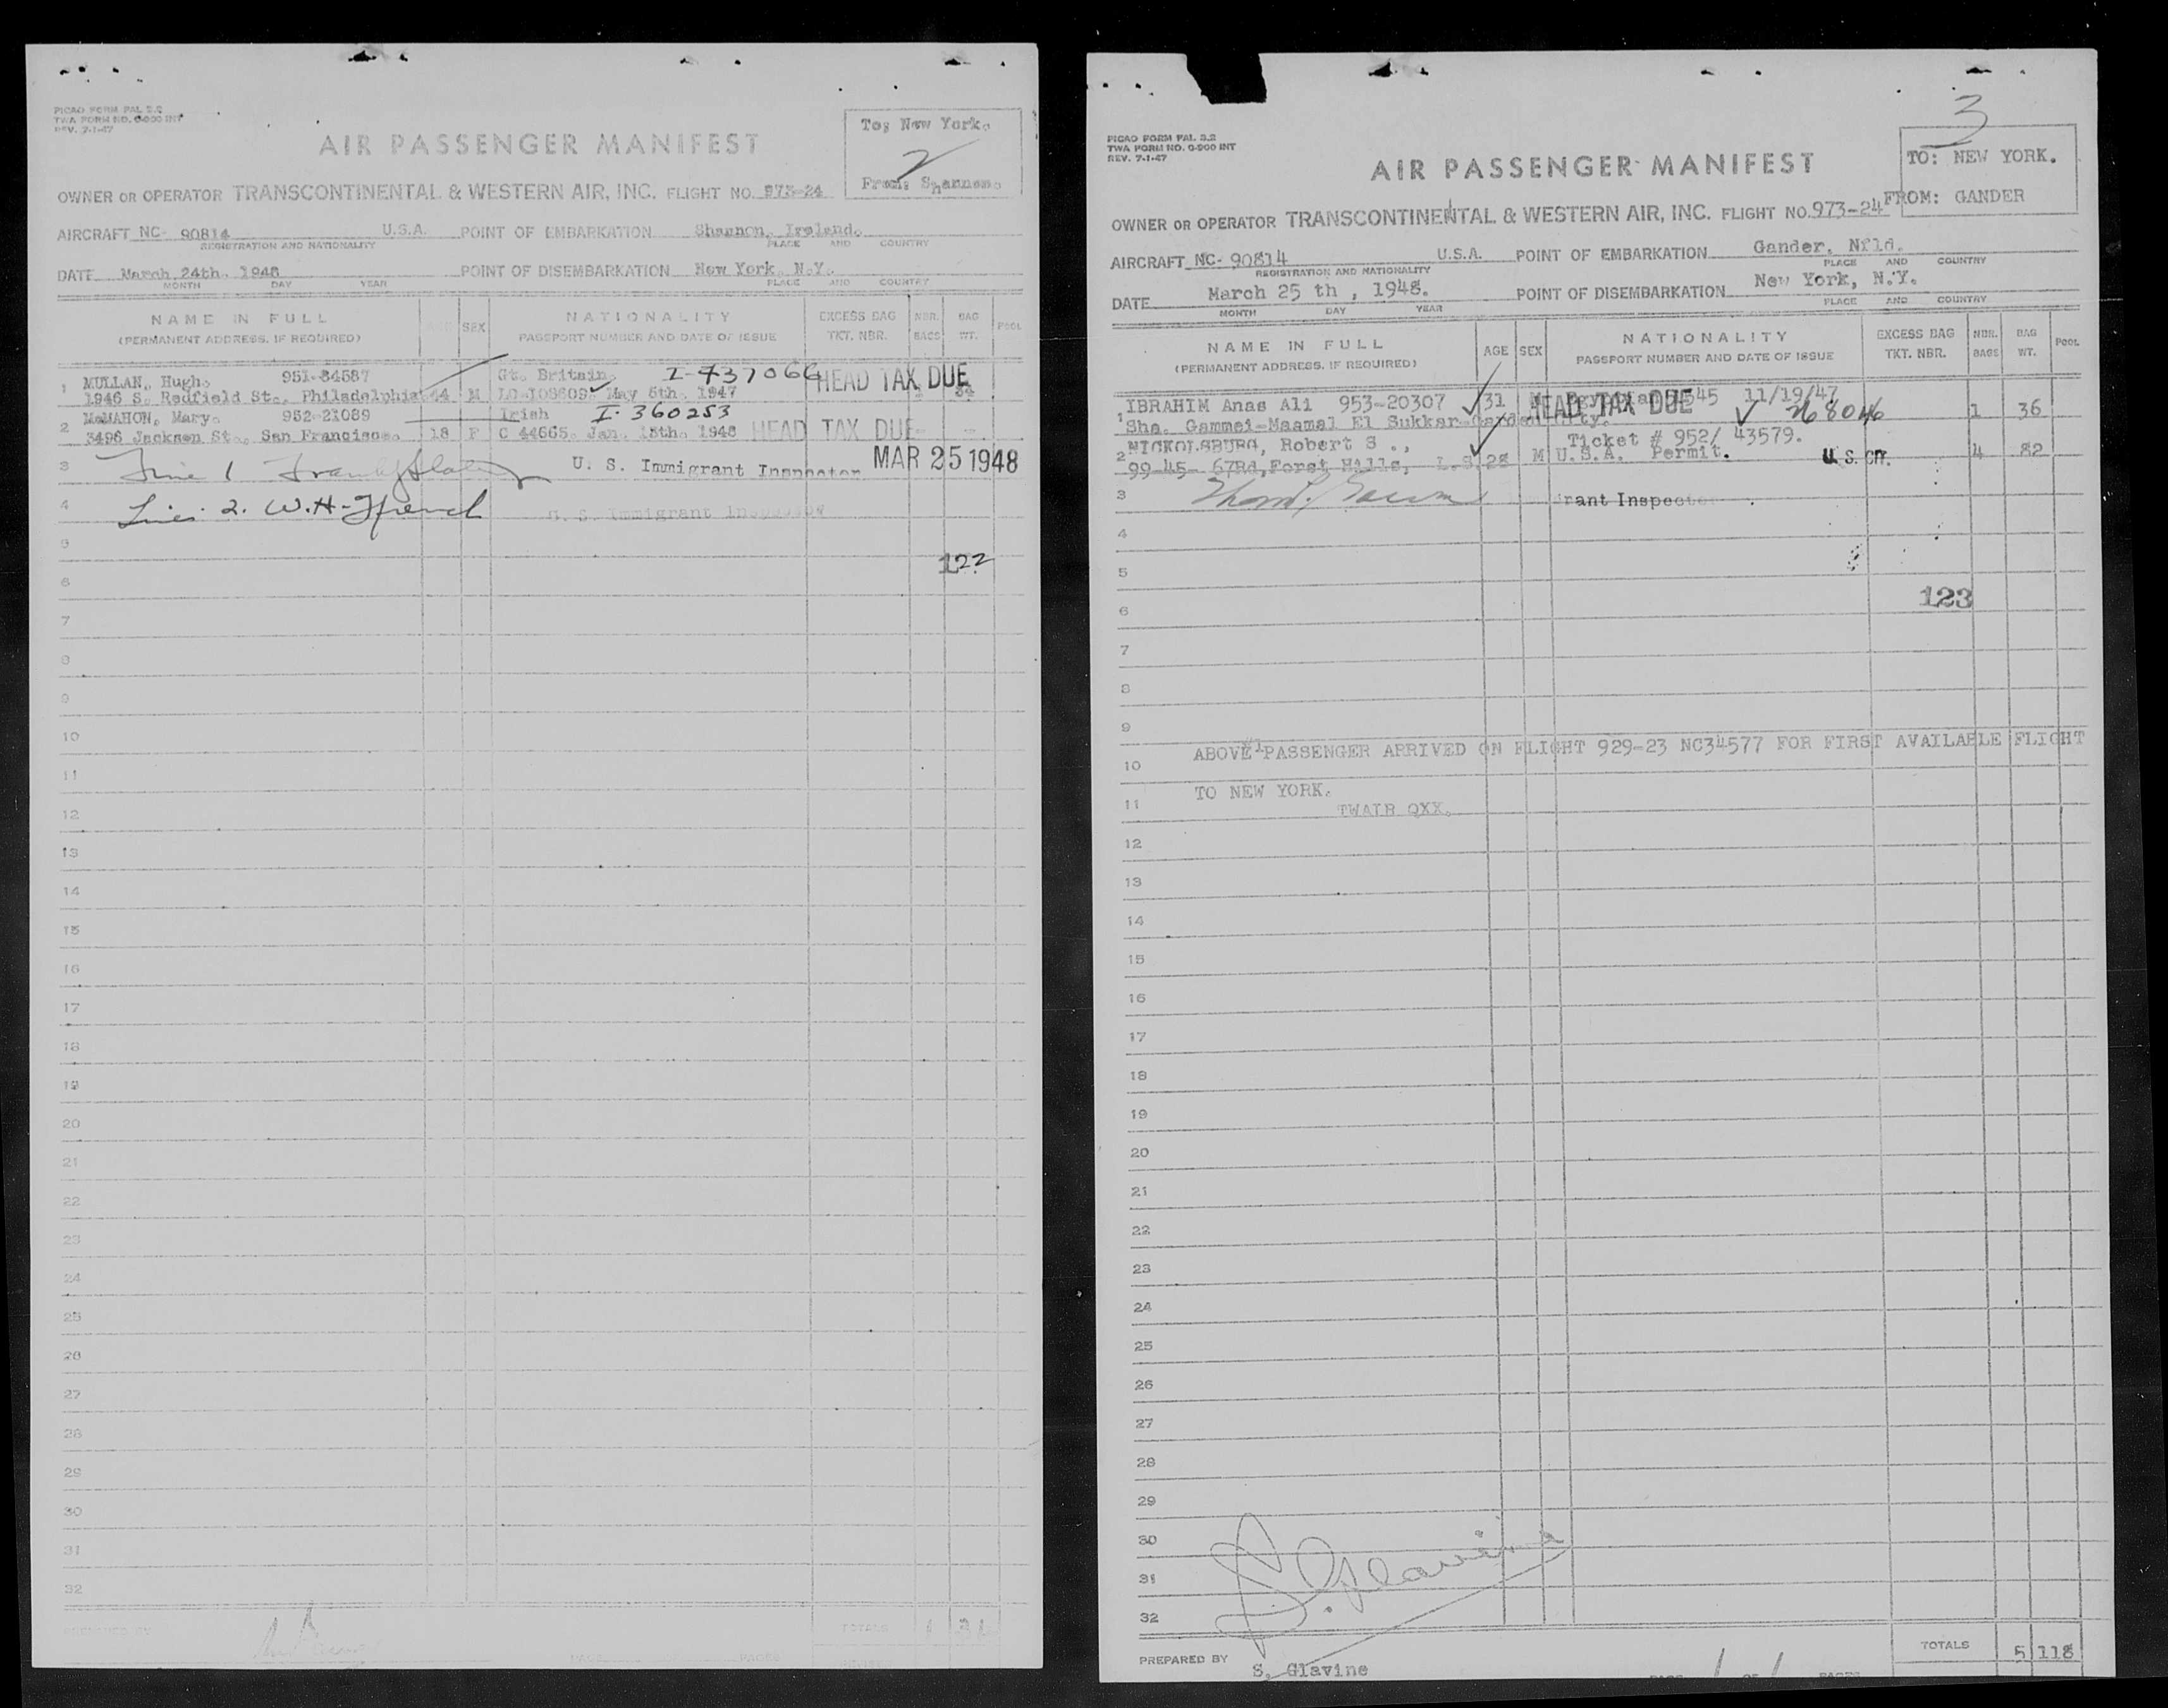 PICAO FORM PAL 2.2
TWA FORM NO. O-900 INT
REV. 7-1-47
To: New York.
2
From: Shannon.
AIR PASSENGER MANIFEST
OWNER OR OPERATOR TRANSCONTINENTAL & WESTERN AIR, INC. FLIGHT NO. 973-24
AIRCRAFT NC- 90814 U.S.A. POINT OF EMBARKATION Shannon, Ireland.
REGISTRATION AND NATIONALITY PLACE AND COUNTRY
DATE March 24th. 1948 POINT OF DISEMBARKATION New York N.Y.
MONTH DAY YEAR PLACE AND COUNTRY
NAME IN FULL SEX NATIONALITY EXCESS BAG NBR. BAG POOL
(PERMANENT ADDRESS, IF REQUIRED) PASSPORT NUMBER AND DATE OF ISSUE TKT. NBR. BAGS WT.
1 MULLAN, Hugh. 951-84587 Gt. Britain. I-437066 HEAD TAX DUE
1946 S. Redfield St., Philadelphia 44 M May 6th. 1947 34
2 McMAHON, Mary. 952-21089 Irish I-360253
3496 Jackson St., San Francisco. 18 F C 44665. Jan. 15th. 1948 HEAD TAX DUE
3 Line 1 U. S. Immigrant Inspector MAR 25 1948
4 Line 2. W.H. French U. S. Immigrant Inspector
5
122
6
7
8
9
10
11
12
13
14
15
16
17
18
19
20
21
22
23
24
25
26
27
28
29
30
31
32
PREPARED BY PAGE PAGES TOTALS 1 34
3
PICAO FORM PAL 2.2
TWA FORM NO. O-900 INT
REV. 7-1-47
TO: NEW YORK.
FROM: GANDER
AIR PASSENGER MANIFEST
OWNER OR OPERATOR TRANSCONTINENTAL & WESTERN AIR, INC. FLIGHT NO. 973-24
AIRCRAFT NC- 90814 U.S.A. POINT OF EMBARKATION Gander, Nfld.
REGISTRATION AND NATIONALITY PLACE AND COUNTRY
DATE March 25 th , 1948. POINT OF DISEMBARKATION New York, N.Y.
MONTH DAY YEAR PLACE AND COUNTRY
NAME IN FULL AGE SEX NATIONALITY EXCESS BAG NBR. BAG POOL
(PERMANENT ADDRESS, IF REQUIRED) PASSPORT NUMBER AND DATE OF ISSUE TKT. NBR. BAGS WT.
1 IBRAHIM Anas Ali 953-20307 31 M Egyptian 11/19/47 HEAD TAX DUE 1 36
Sha. Gammei-Maamal El Sukkar-Garden City.
2 NICKOLSBURG, Robert S ., Ticket # 952/ 43579.
99-45- 67Rd, Forst Hills, L.I. 28 M U.S.A. Permit. U. S. CIT. 4 82
3 rant Inspector
4
5
6 123
7
8
9
10 ABOVE #1 PASSENGER ARRIVED ON FLIGHT 929-23 NC34577 FOR FIRST AVAILABLE FLIGHT
11 TO NEW YORK.
TWAIR QXX.
12
13
14
15
16
17
18
19
20
21
22
23
24
25
26
27
28
29
30
31 S. Glavine
32
PREPARED BY S. Glavine PAGE 1 OF 1 PAGES TOTALS 5 118